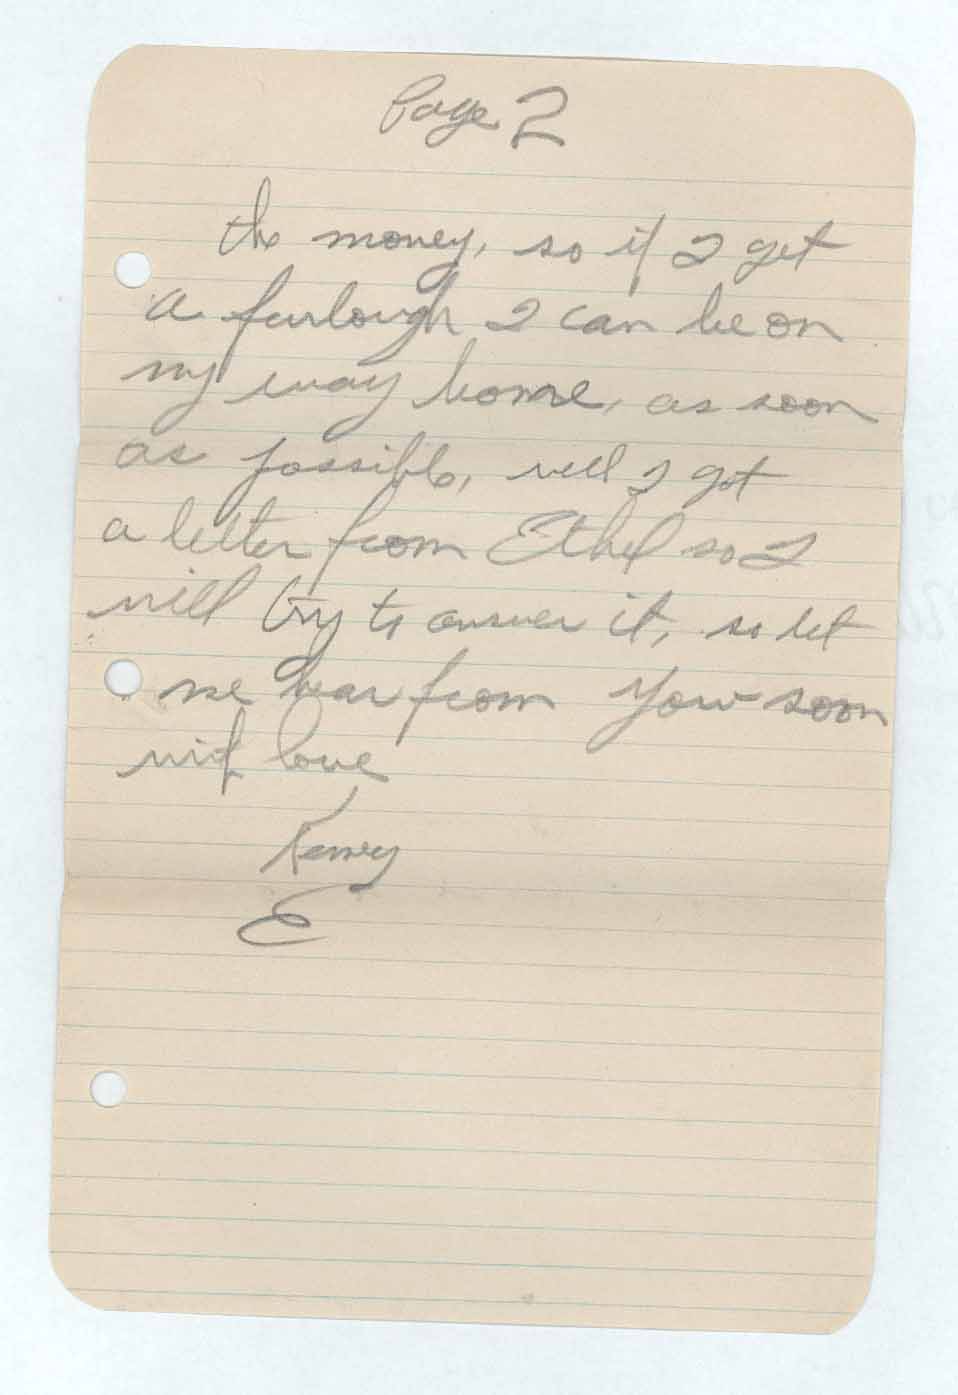 Page 2
the money, so if I get
a furlough I can be on
my way home, as soon
as possible, well I got
a letter from Ethel so I
will try to answer it, so let
me hear from you soon
with love
E